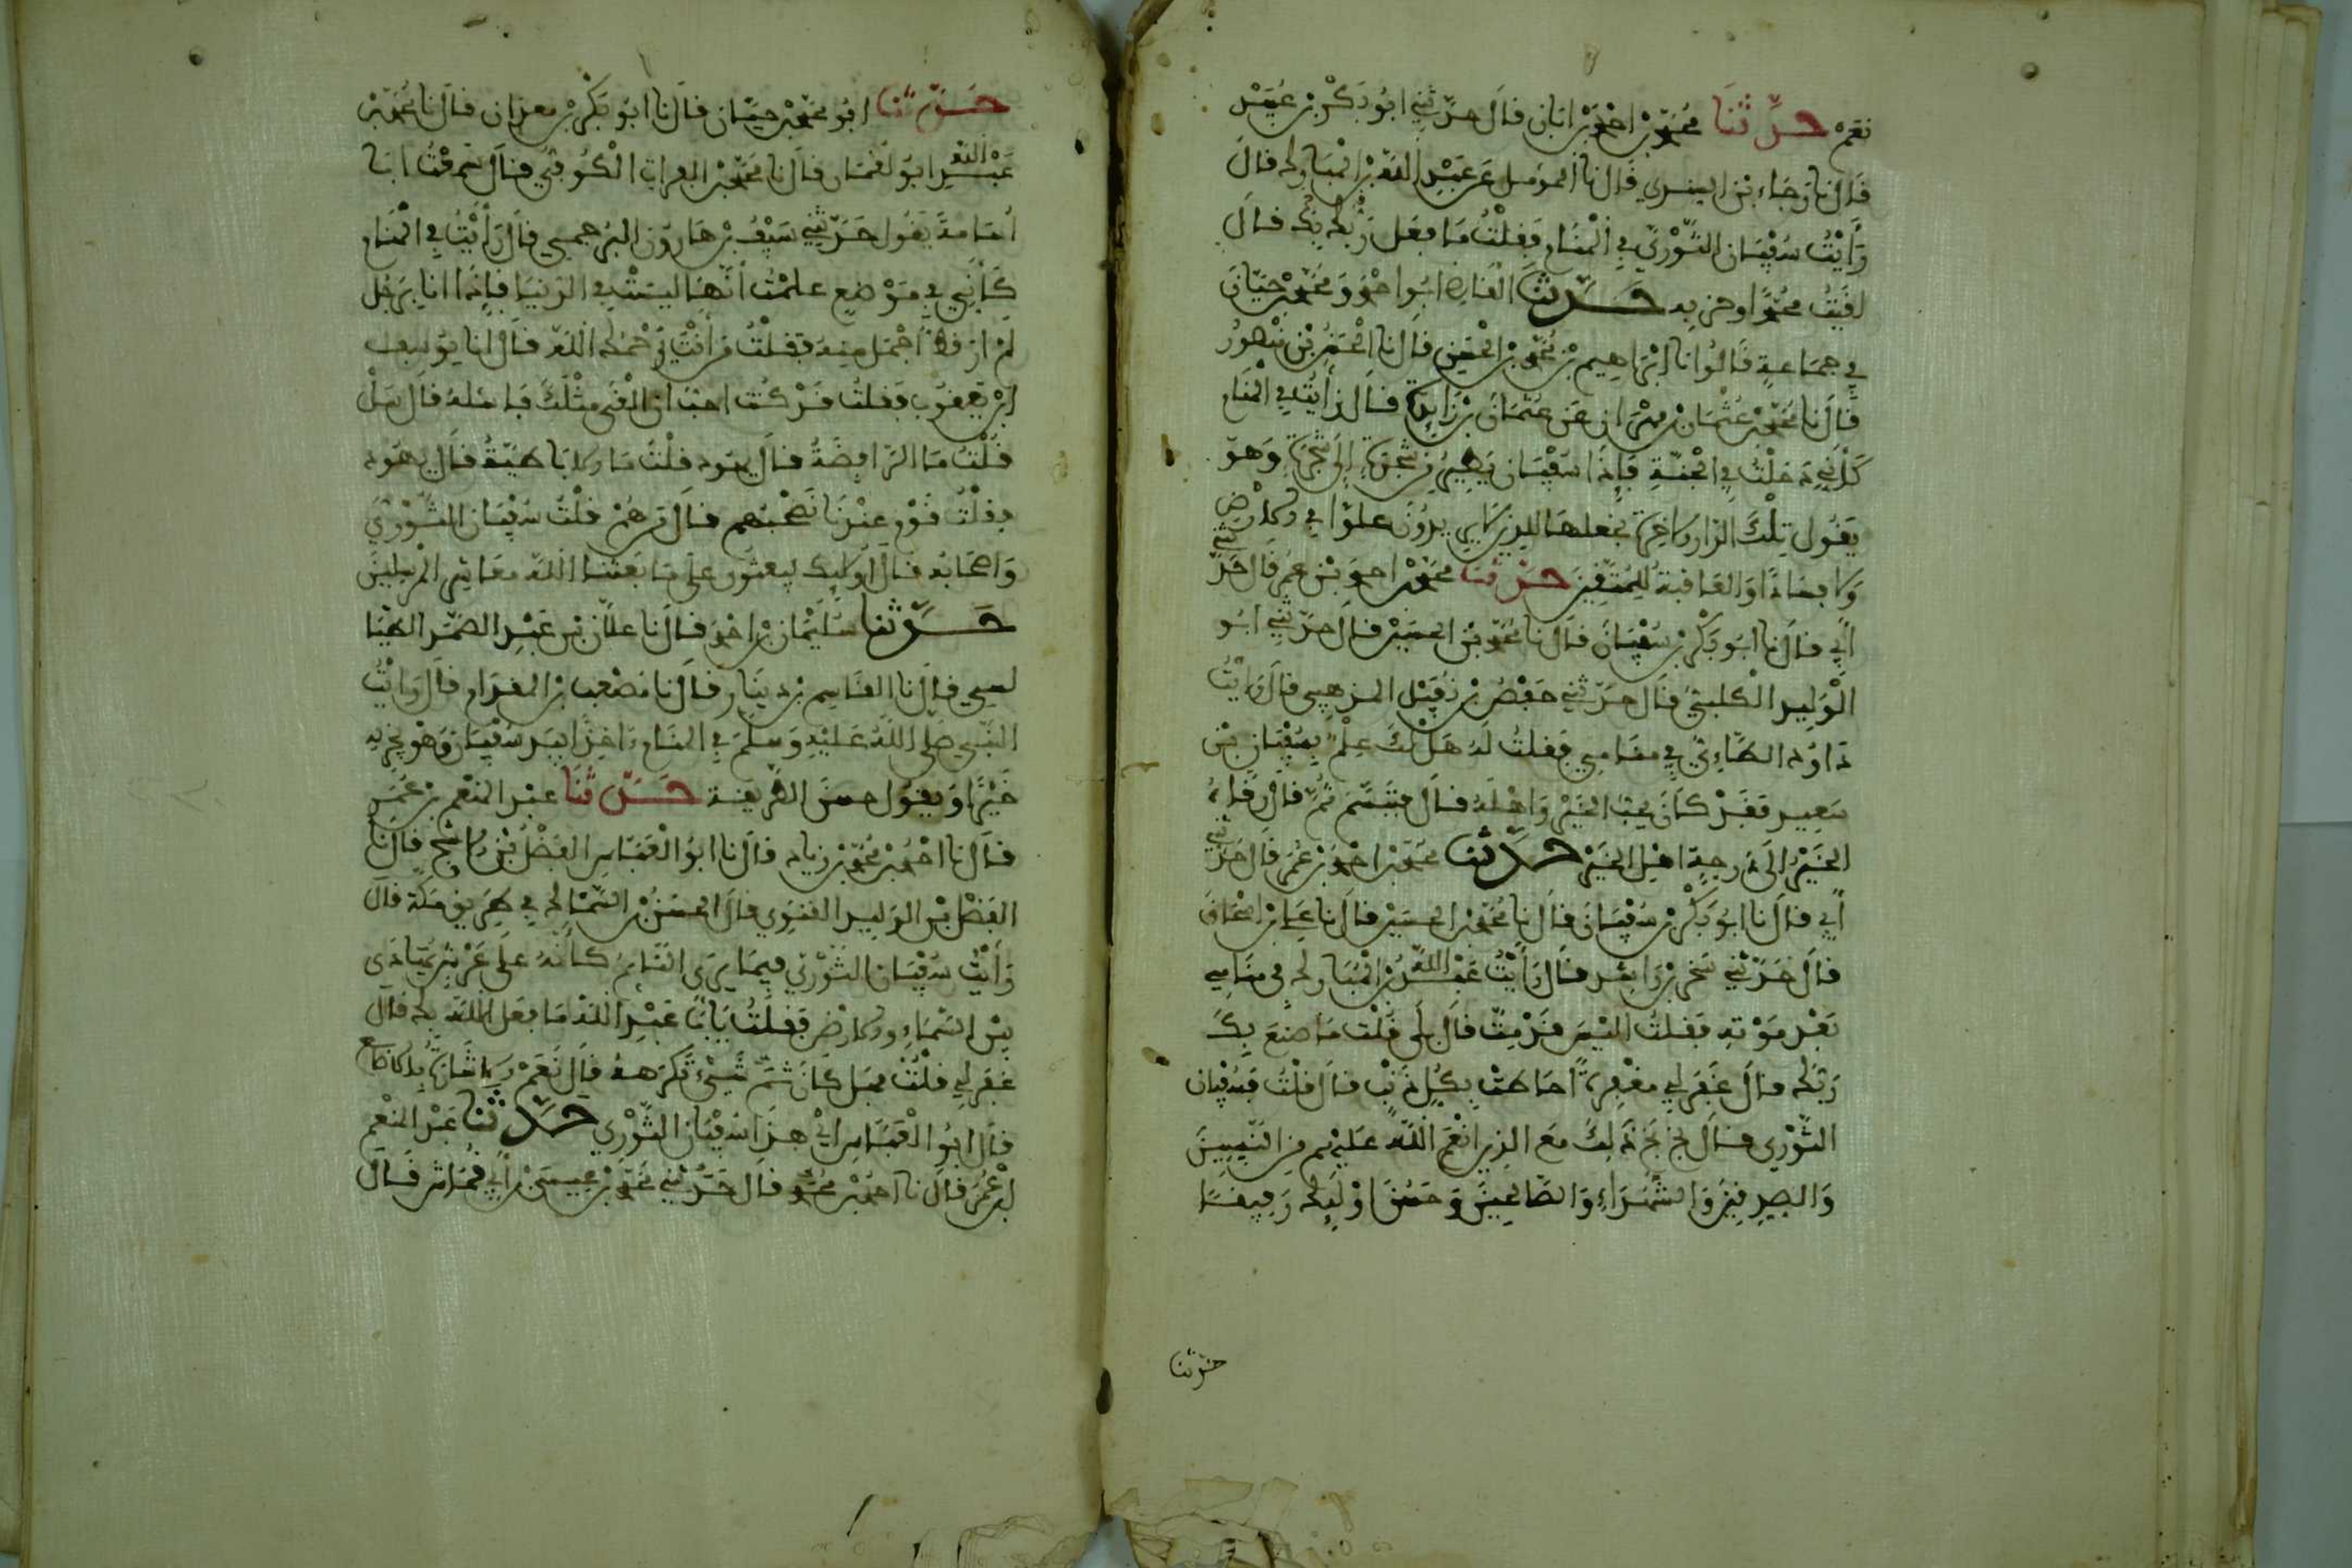 نعم حدثنا محمد بن احمد بن ابان قال حدثني ابو بكر بن عبيد
قال نا رجاء بن السندي قال نا المومل عن عبد الله بن المبارك قال
رايت سفيان الثوري في المنام فقلت ما فعل ربك بك فال
لقيت محمدا وحزبه حدثنا القاضي ابو احمد ومحمد بن حيان
في جماعة قالوا نا ابراهيم بن محمد بن الحسن قال نا الحسن بن منصور
قال نا محمد بن عثمان بن مهران عن عثمان بن زايدة قال رايت في المنام
كاني دخلت في الجنة فإذا سفيان يطير من شجرة إلى شجرة وهو
يقول تلك الدار الاخرة نجعلها للذين لا يريدون علوا في الارض
ولا فسادا والعاقبة للمتقين حدثنا محمد بن احمد بن عمر قال حدثني
أبي قال نا ابو بكر بن سفيان قال نا محمد بن الحسين قال حدثني ابو
الوليد الكلبي قال حدثني حفص بن نفيل المذهبي قال رايت
داود الطاءي في منامي فقلت له هل لك علم بسفيان بن
سعيد فقد كان يحب الخير واهله قال فتبسم ثم قال رقاه
الخير الى درجة اهل الخير حدثنا محمد بن احمد بن عمر قال حدثني
أبي قال نا ابو بكر بن سفيان قال نا محمد بن الحسين قال نا علي بن اسحاق
قال حدثني صخر بن راشد قال رأيت عبد الله بن المبارك في منامي
بعد موته فقلت اليس قد مت قال بلى قلت ما صنع بك
ربك قال غفر لي مغفرة احاطت بكل ذنب قال قلت فسفيان
الثوري قال بخ بخ ذلك مع الذين انعم الله عليهم من النبيين
والصديقين والشهداء والصالحين وحسن اولئك رفيقا
حدثنا
حدثنا ابو محمد بن حيان قال نا ابو بكر بن معدان قال نا محمد بن
عبد الله ابو لقمان قال نا محمد بن الفرات الكوفي قال سمعت ابا
أسامة يقول حدثني سيف بن هارون البرجمي قال رأيت في المنام
كأني في موضع علمت أنها ليست في الدنيا فإذا انا برجل
لم ار قط أجمل منه فقلت من أنت يرحمك الله قال انا يوسف
ابن يعقوب فقلت قد كنت احب ان القى مثلك فاسئله قال سل
قلت ما الرافضة قال يهود قلت ما الاباضية قال يهود
فقلت قوم عندنا نصحبهم قال من هم قلت سفيان الثوري
واصحابه قال أوليك يبعثون على ما بعثنا الله معاشر المرسلين
حدثنا سليمان بن احمد قال نا علان بن عبد الصمد الطيا
لسي قال نا القاسم بن دينار قال نا مصعب بن المقدام قال رايت
النبي صلى الله عليه وسلم في المنام ءاخذا بيد سفيان وهو يجزيه
خيرا ويقول حسن الطريقة حدثنا عبد المنعم بن عمر
قال نا احمد بن محمد بن زياد قال نا ابو العباس الفضل بن الاشج قال نا
الفضل بن الوليد الغنوي قال الحسن بن السماك في طريق مكة قال
رأيت سفيان الثوري فيما يرى النايم كأنه على عرش يتهادى
بين السماء والارض فقلت يابا عبد الله ما فعل الله بك قال
غفر لي قلت فهل كان ثم شيء تكرهه قال نعم الاشارة بالاصابع
قال ابو العباس اي هذا سفيان الثوري حدثنا عبد المنعم
ابن عمر قال نا احمد بن محمد قال حدثني محمد بن عيسى بن أبي قماش قال